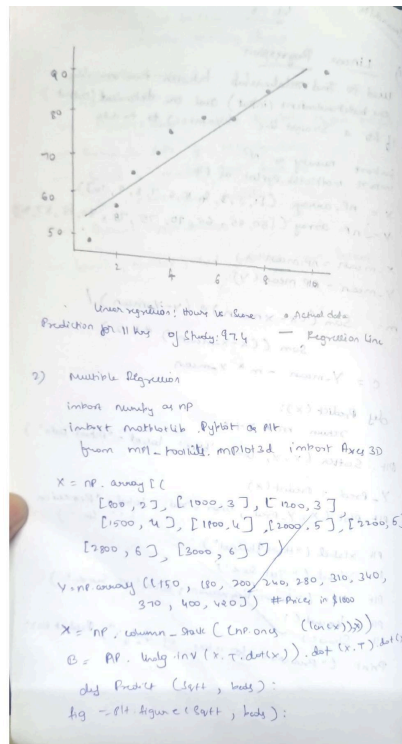 90
80
70
60
50
2 4 6 8 10
Linear regression: Hours vs Score • Actual data
Prediction for 11 hrs of Study: 97.4 — Regression Line
2) Multiple Regression
import numpy as np
import matplotlib. Pyplot as Plt
from mpl_toolkits. mplot3d import Axes 3D
X = np. array [(
[800, 2], [1000, 3], [1200, 3],
[1500, 4], [1800, 4], [2000, 5], [2200, 5]
[2800, 6], [3000, 6] ])
Y = np. array ([150, 180, 200, 240, 280, 310, 340,
370, 400, 420]) # Prices in $1000
X = np. column_stack ((np.ones (len(x)), x))
B = np. linalg. inv (x. T. dot(x)). dot (x. T) dot(
def Predict (Sqft, beds):
fig = Plt. figure (Sqft, beds):